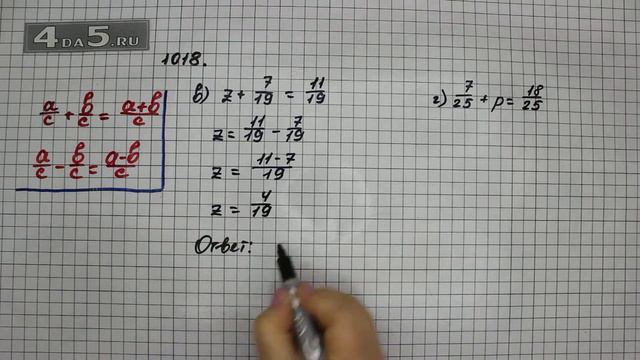 4DA5.RU
1018.
a/c + b/c = a+b/c
a/c - b/c = a-b/c
в) z + 7/19 = 11/19
z = 11/19 - 7/19
z = 11-7/19
z = 4/19
Ответ:
г) 7/25 + p = 18/25